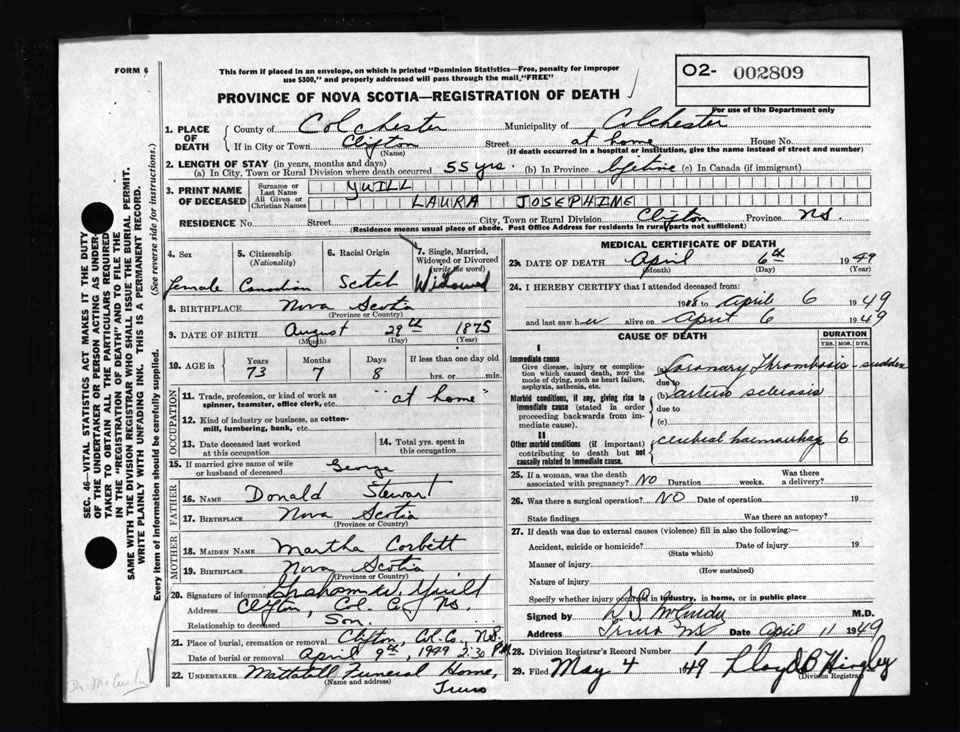 FORM 6
This form if placed in an envelope, on which is printed "Dominion Statistics—Free, penalty for improper
use $300," and properly addressed will pass through the mail "FREE"
O2- 002809
PROVINCE OF NOVA SCOTIA—REGISTRATION OF DEATH
For use of the Department only
SEC. 46—VITAL STATISTICS ACT MAKES IT THE DUTY
OF THE UNDERTAKER OR PERSON ACTING AS UNDER-
TAKER TO OBTAIN ALL THE PARTICULARS REQUIRED
IN THE "REGISTRATION OF DEATH" AND TO FILE THE
SAME WITH THE DIVISION REGISTRAR WHO SHALL ISSUE THE BURIAL PERMIT.
WRITE PLAINLY WITH UNFADING INK. THIS IS A PERMANENT RECORD.
Every item of information should be carefully supplied. (See reverse side for instructions.)
1. PLACE OF DEATH County of Colchester Municipality of Colchester
If in City or Town Clifton Street at home House No.
(Name) (If death occurred in a hospital or institution, give the name instead of street and number)
2. LENGTH OF STAY (in years, months and days)
(a) In City, Town or Rural Division where death occurred 55 yrs. (b) In Province lifetime (c) In Canada (if immigrant)
3. PRINT NAME OF DECEASED Surname or Last Name YUILL
All Given or Christian Names LAURA JOSEPHINE
RESIDENCE No. Street City, Town or Rural Division Clifton Province N.S.
(Residence means usual place of abode. Post Office Address for residents in rural parts not sufficient)
4. Sex Female
5. Citizenship (Nationality) Canadian
6. Racial Origin Scotch
7. Single, Married, Widowed or Divorced (write the word) Widowed
8. BIRTHPLACE Nova Scotia
(Province or Country)
9. DATE OF BIRTH August 29th 1875
(Month) (Day) (Year)
10. AGE in Years 73 Months 7 Days 8 If less than one day old hrs. or min.
OCCUPATION
11. Trade, profession, or kind of work as spinner, teamster, office clerk, etc. "at home"
12. Kind of industry or business, as cotton-mill, lumbering, bank, etc.
13. Date deceased last worked at this occupation
14. Total yrs. spent in this occupation
15. If married give name of wife or husband of deceased George
FATHER
16. NAME Donald Stewart
17. BIRTHPLACE Nova Scotia
(Province or Country)
MOTHER
18. MAIDEN NAME Martha Corbett
19. BIRTHPLACE Nova Scotia
(Province or Country)
20. Signature of informant Graham W. Yuill
Address Clifton, Col. Co., N.S.
Relationship to deceased Son.
21. Place of burial, cremation or removal Clifton, Col. Co., N.S.
Date of burial or removal April 9th, 1949 2:30 P.M.
22. UNDERTAKER Mattatall Funeral Home,
(Name and address) Truro
Dr. McCurdy
MEDICAL CERTIFICATE OF DEATH
23. DATE OF DEATH April 6th 1949
(Month) (Day) (Year)
24. I HEREBY CERTIFY that I attended deceased from:
April 6 1949
and last saw her alive on April 6 1949
CAUSE OF DEATH
DURATION
YRS. MOS. DYS.
I
Immediate cause
Give disease, injury or complication which caused death, not the mode of dying, such as heart failure, asphyxia, asthenia, etc.
Coronary Thrombosis - sudden
due to
Morbid conditions, if any, giving rise to immediate cause (stated in order proceeding backwards from immediate cause).
(b) arterio sclerosis
due to
(c)
II
Other morbid conditions (if important) contributing to death but not causally related to immediate cause.
cerebral haemorrhage 6
25. If a woman, was the death associated with pregnancy? NO Duration weeks. Was there a delivery?
26. Was there a surgical operation? NO Date of operation 19
State findings Was there an autopsy?
27. If death was due to external causes (violence) fill in also the following:—
Accident, suicide or homicide? Date of injury 19
(State which)
Manner of injury
(How sustained)
Nature of injury
Specify whether injury occurred in industry, in home, or in public place
Signed by D.S. McCurdy M.D.
Address Truro NS Date April 11 1949
28. Division Registrar's Record Number 1
29. Filed May 4 1949 Lloyd B Hingley
(Division Registrar)